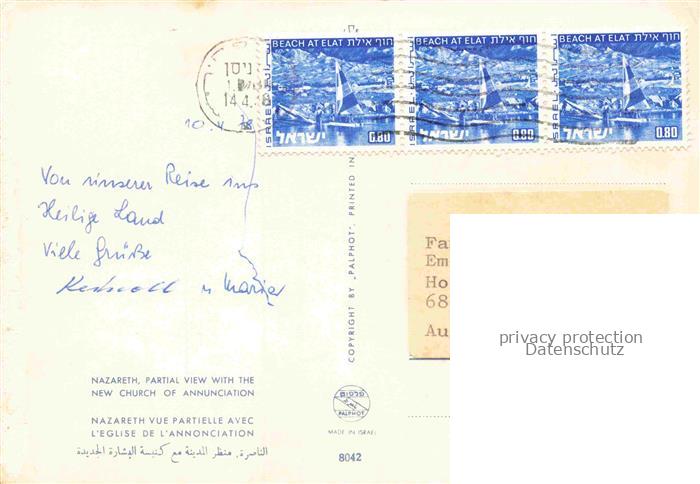 חוף אילת BEACH AT ELAT
ISRAEL
ישראל
0.80
חוף אילת BEACH AT ELAT
ISRAEL
ישראל
0.80
חוף אילת BEACH AT ELAT
ISRAEL
ישראל
0.80
ניסן
14.4.
Von unserer Reise ins
Heilige Land
Viele Grüße
u Maria
COPYRIGHT BY „PALPHOT", PRINTED IN
Fa
Em
Ho
68
Au
privacy protection
Datenschutz
NAZARETH, PARTIAL VIEW WITH THE
NEW CHURCH OF ANNUNCIATION
NAZARETH VUE PARTIELLE AVEC
L'EGLISE DE L'ANNONCIATION
الناصرة. منظر المدينة مع كنيسة البشارة الجديدة
פלפוט
PALPHOT
MADE IN ISRAEL
8042